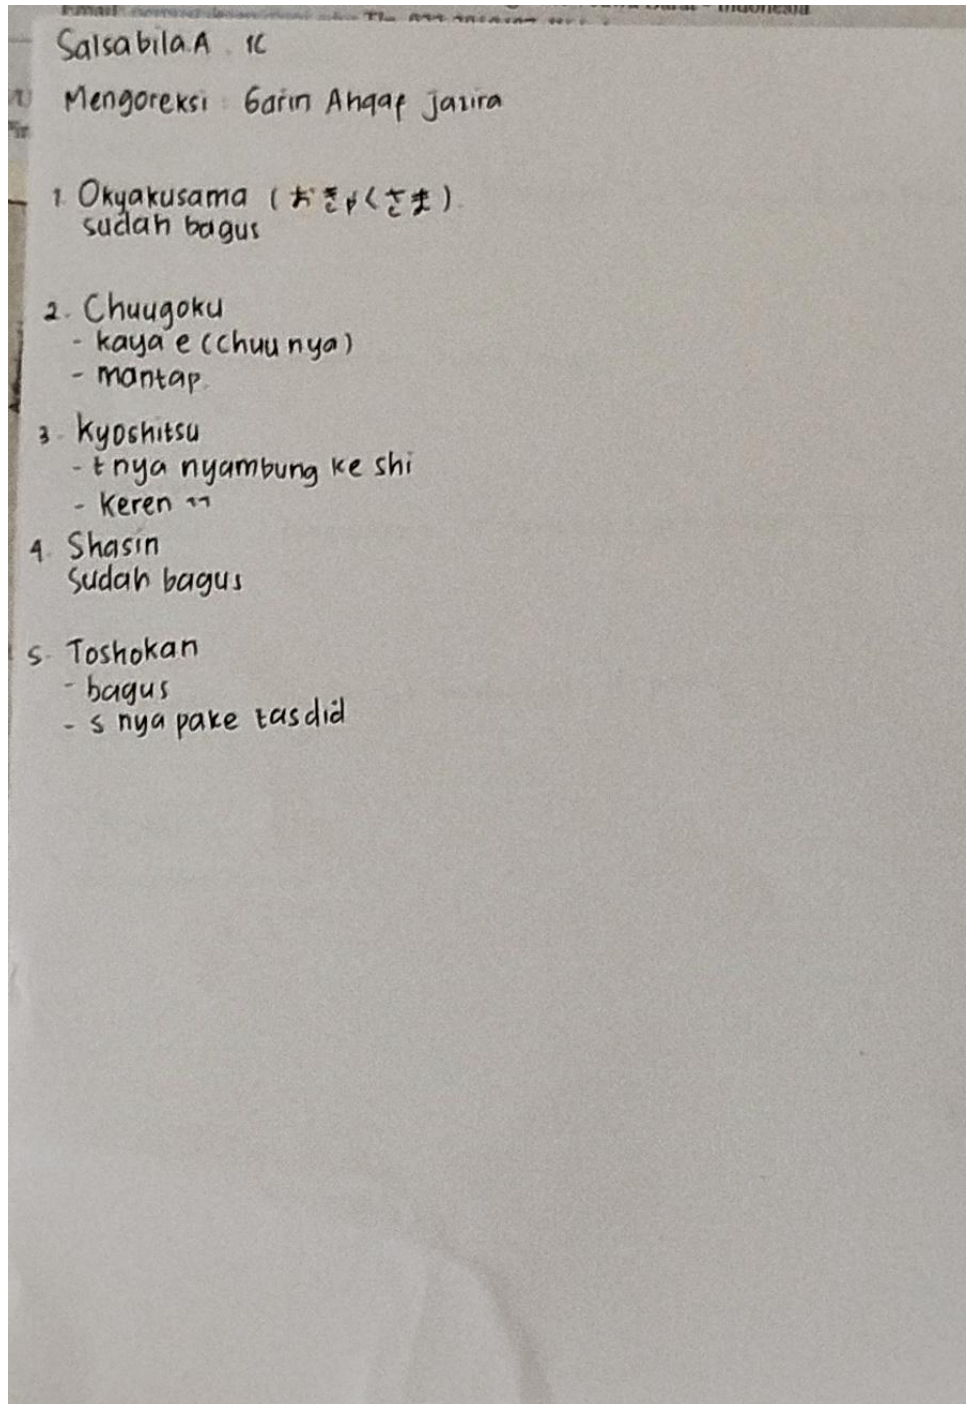 Email
Indonesia
Salsabila.A 1C
Mengoreksi : Garin Ahqaf jazira
1. Okyakusama (おきゃくさま).
sudah bagus
2. Chuugoku
- kaya e (chuu nya)
- mantap.
3. Kyoshitsu
- t nya nyambung ke shi
- keren ^^
4. Shasin
Sudah bagus
5. Toshokan
- bagus
- s nya pake tasdid